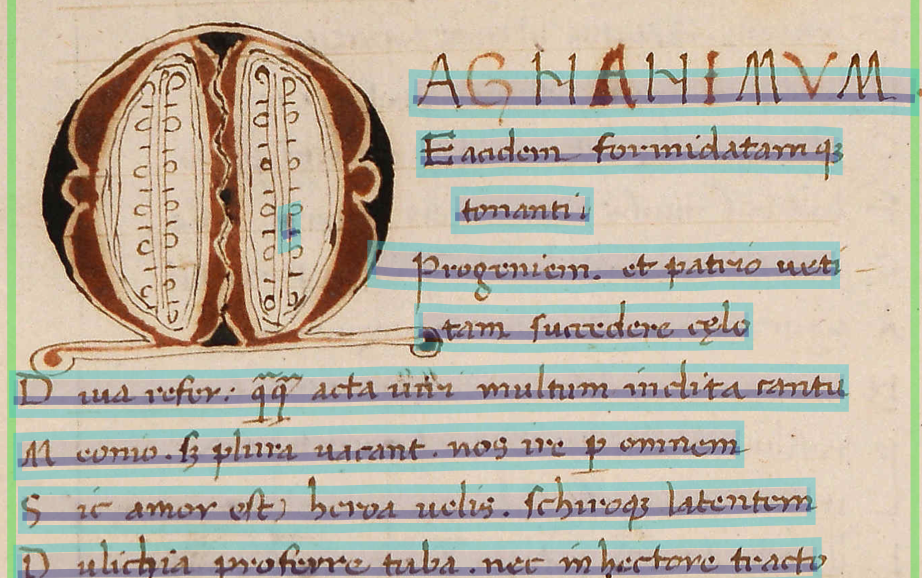 MAGNANIMUM
Eacidem formidatamqꝫ
tonanti
Progeniem. et patrio ueti
tam succedere cęlo
Diua refer: qq̃ acta uiri multum inclita cantu
Meonio. sꝫ plura uacant. nos ire ꝑ omnem
Sic amor est) heroa uelis. schiroqꝫ latentem
Dulichia proferre tuba. nec in hectore tracto